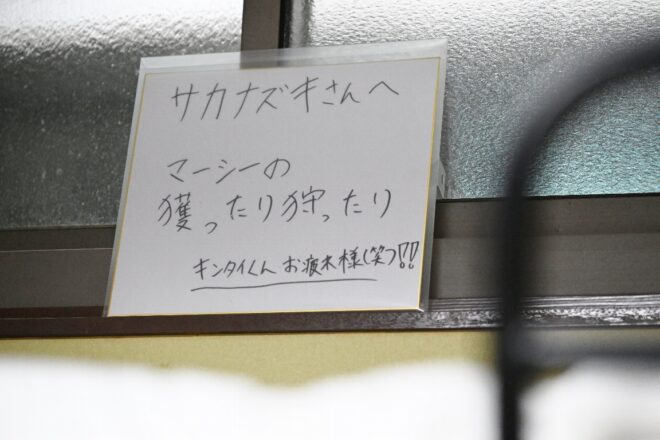 サカナズキさんへ
マーシーの
獲ったり狩ったり
キンタイくん お疲れ様(笑)!!